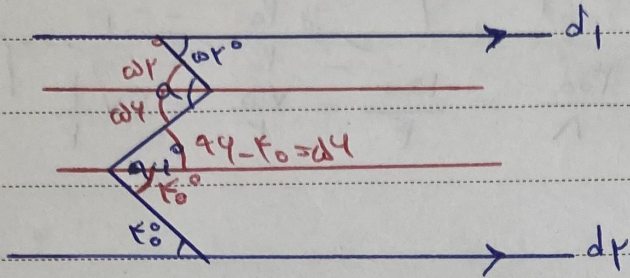 d₁
۵۲°
۵۲
α
۵۶
۹۶ - ۴۰ = ۵۶
۴۰°
۴۰°
d۲